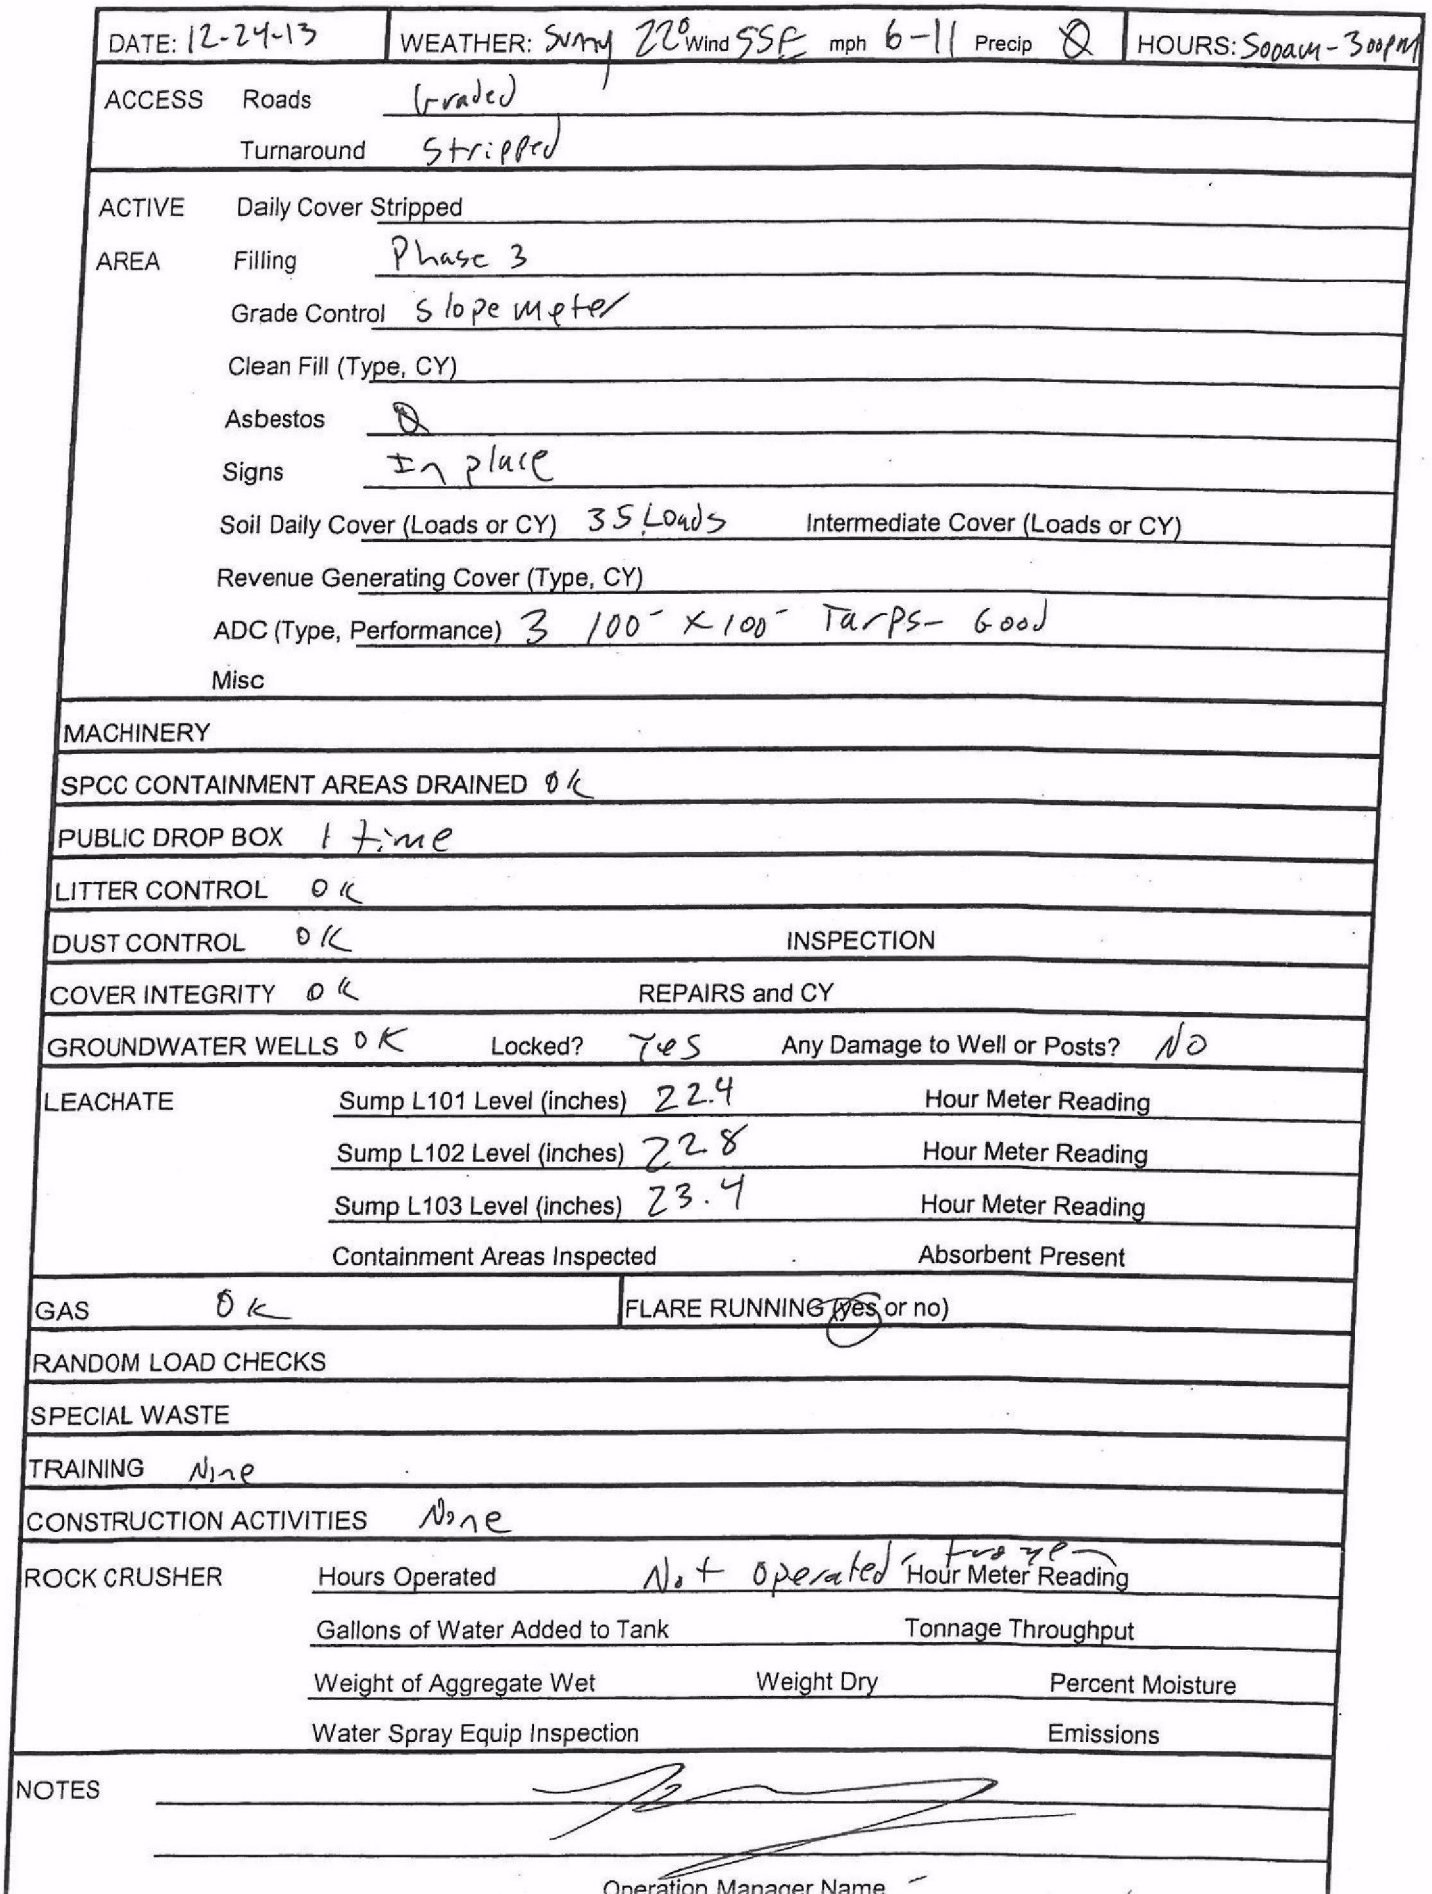 DATE: 12-24-13 WEATHER: Sunny 22° Wind SSE mph 6-11 Precip 0 HOURS: 500am-300pm
ACCESS Roads Graded
Turnaround Stripped
ACTIVE Daily Cover Stripped
AREA Filling Phase 3
Grade Control Slope meter
Clean Fill (Type, CY)
Asbestos 0
Signs In place
Soil Daily Cover (Loads or CY) 35 Loads Intermediate Cover (Loads or CY)
Revenue Generating Cover (Type, CY)
ADC (Type, Performance) 3 100- x 100- Tarps- Good
Misc
MACHINERY
SPCC CONTAINMENT AREAS DRAINED OK
PUBLIC DROP BOX 1 time
LITTER CONTROL OK
DUST CONTROL OK INSPECTION
COVER INTEGRITY OK REPAIRS and CY
GROUNDWATER WELLS OK Locked? Yes Any Damage to Well or Posts? NO
LEACHATE Sump L101 Level (inches) 22.4 Hour Meter Reading
Sump L102 Level (inches) 22.8 Hour Meter Reading
Sump L103 Level (inches) 23.4 Hour Meter Reading
Containment Areas Inspected Absorbent Present
GAS OK FLARE RUNNING (yes or no)
RANDOM LOAD CHECKS
SPECIAL WASTE
TRAINING None
CONSTRUCTION ACTIVITIES None
ROCK CRUSHER Hours Operated Not operated - frozen Hour Meter Reading
Gallons of Water Added to Tank Tonnage Throughput
Weight of Aggregate Wet Weight Dry Percent Moisture
Water Spray Equip Inspection Emissions
NOTES
Operation Manager Name